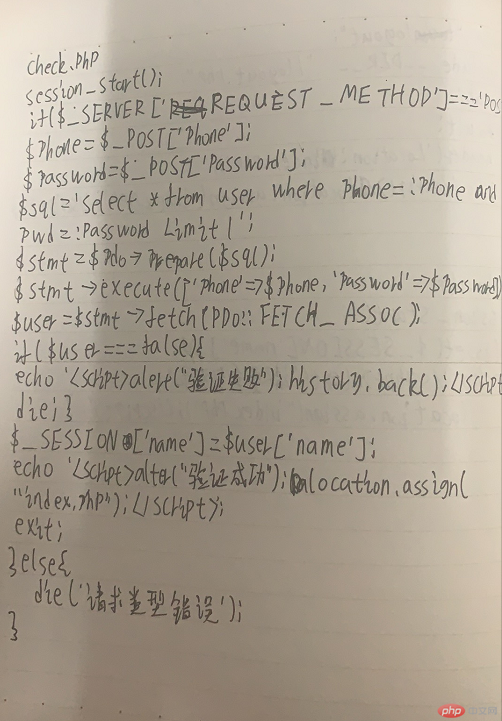 check.php
session_start();
if($_SERVER['REQUEST_METHOD']==='POS
$Phone=$_POST['Phone'];
$Password=$_POST['Password'];
$sql='select * from user where Phone=:Phone and
pwd=:Password Limit 1';
$stmt=$Pdo->Prepare($sql);
$stmt->execute(['Phone'=>$Phone,'Password'=>$Password])
$user=$stmt->fetch(PDO::FETCH_ASSOC);
if($user===false){
echo '<script>alert("验证失败");history.back();</script
die;}
$_SESSION['name']=$user['name'];
echo '<script>alter("验证成功");location.assign(
"index.php");</script>';
exit;
}else{
die('请求类型错误');
}
php 中文网